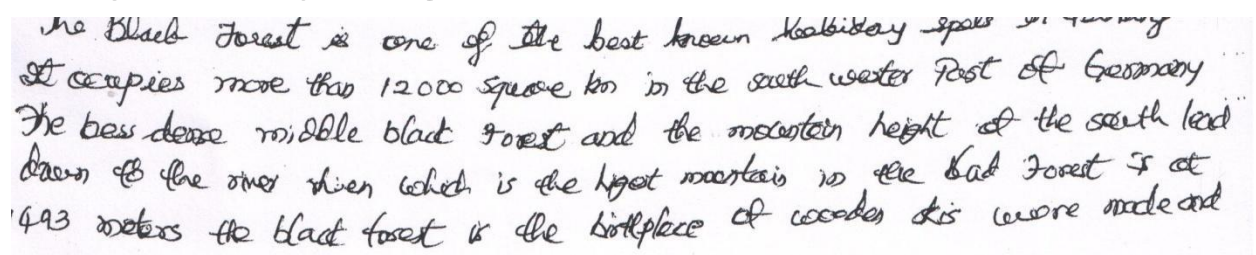 The Black Forest is one of the best known holiday spots in Germany
It occupies more than 12000 square km in the south wester Past of Germany
The bess dense middle black Forest and the mountain height of the south lead
down to the river rhien which is the higest mountain in the black Forest is at
1493 meters the black forest is the birthplace of wooden skis were made and